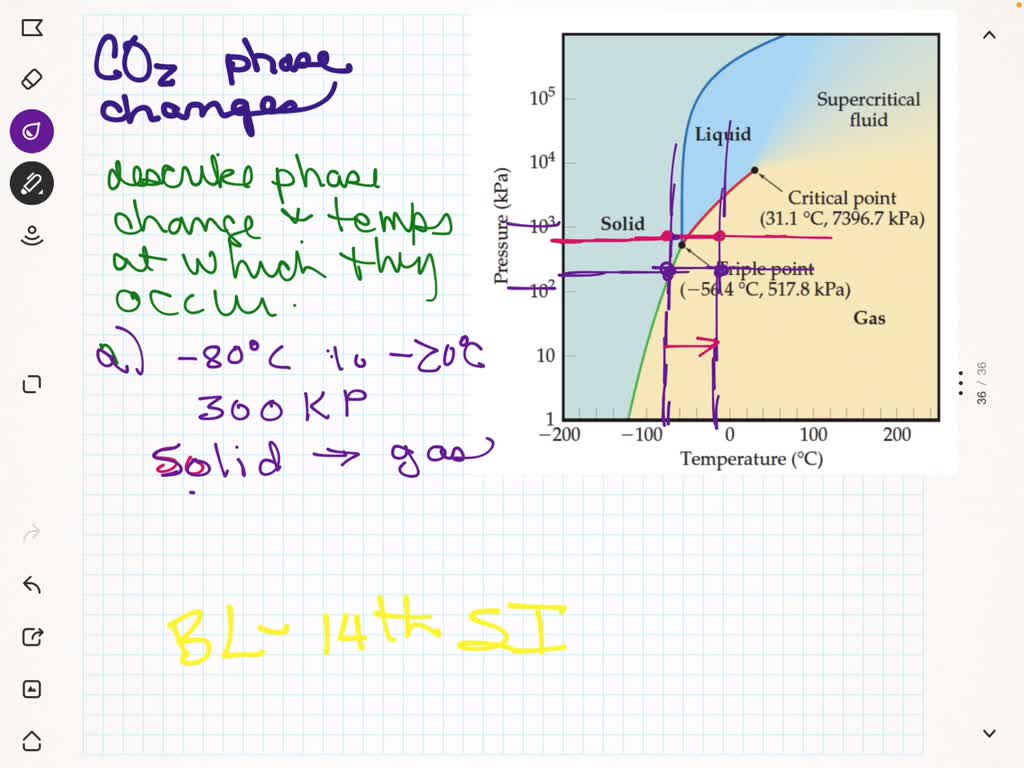 CO2 phase
changes
describe phase
change & temps
at which they
occur.
a) -80°C to -20°C
300 KP
Solid → gas
BL- 14th SI
Pressure (kPa)
10^5
10^4
10^3
10^2
10
1
Supercritical
fluid
Liquid
Solid
Critical point
(31.1 °C, 7396.7 kPa)
Triple point
(−56.4 °C, 517.8 kPa)
Gas
−200 −100 0 100 200
Temperature (°C)
36 / 36